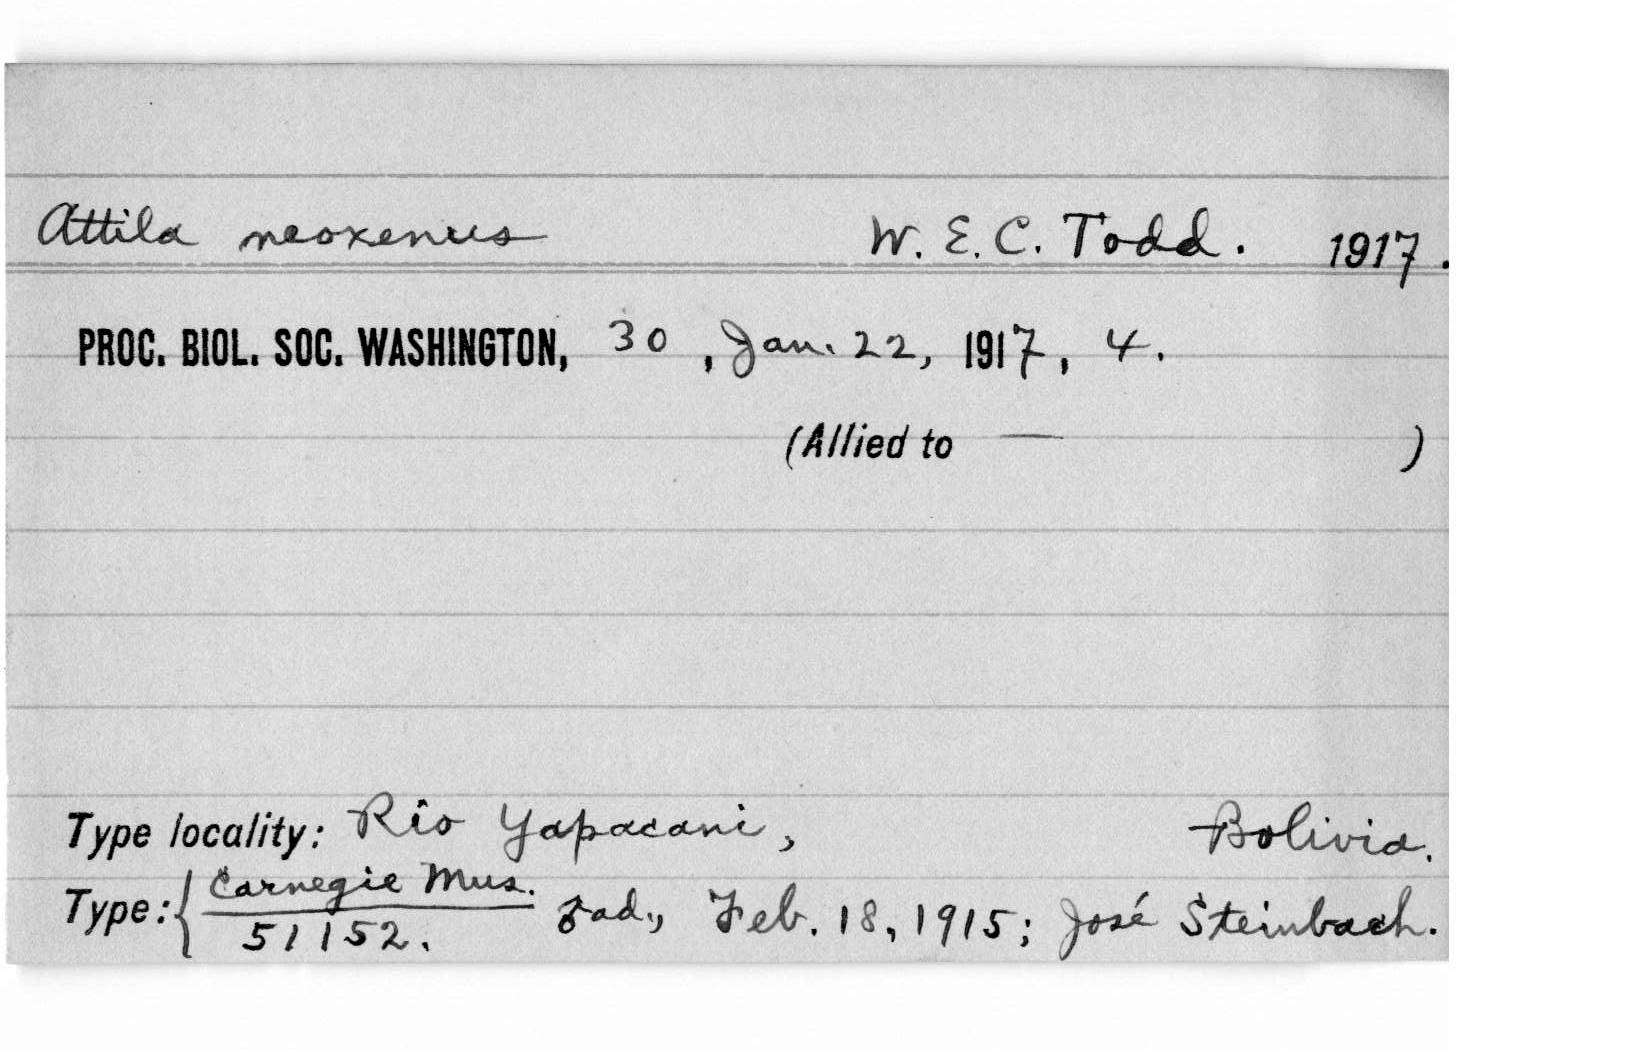 Attila neoxenus W. E. C. Todd. 1917.
PROC. BIOL. SOC. WASHINGTON, 30, Jan. 22, 1917, 4.
(Allied to — )
Type locality: Rio Yapacani, Bolivia.
Type: { Carnegie Mus.
51152. ♂ ad., Feb. 18, 1915; José Steinbach.